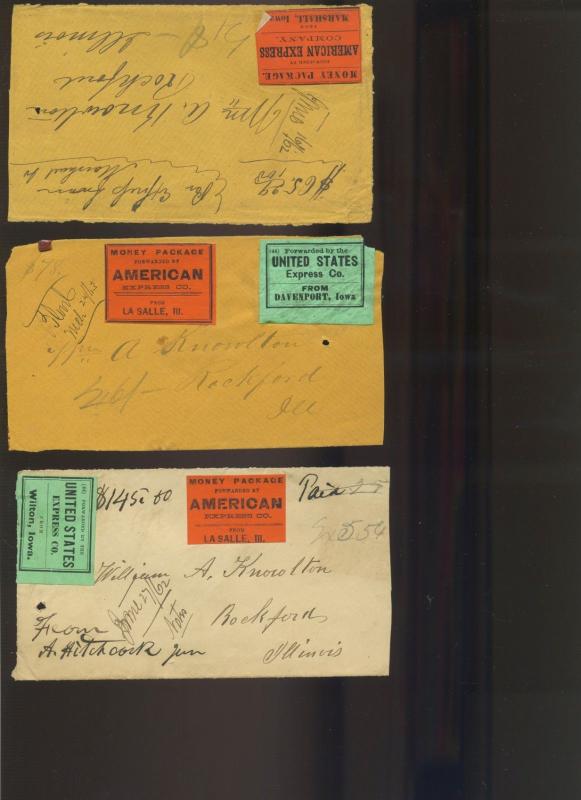 MONEY PACKAGE.
FORWARDED BY
AMERICAN EXPRESS
COMPANY.
FROM
MARSHALL, Iowa
Wm A. Knowlton
Rockford
Illinois
MONEY PACKAGE
FORWARDED BY
AMERICAN
EXPRESS CO.
FROM
LA SALLE, Ill.
(44) Forwarded by the
UNITED STATES
Express Co.
FROM
DAVENPORT, Iowa
Wm A Knowlton
Rockford
Ill
FORWARDED BY THE
UNITED STATES
EXPRESS CO.
FROM
Wilton, Iowa.
$145.00
MONEY PACKAGE
FORWARDED BY
AMERICAN
EXPRESS CO.
FROM
LA SALLE, Ill.
Paid
William A. Knowlton
June 27/62
Rockford
Illinois
From
A. Hitchcock jun